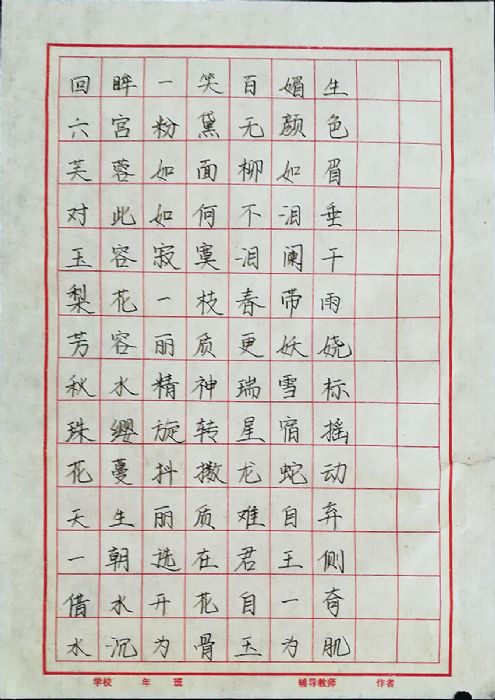 回眸一笑百媚生
六宫粉黛无颜色
芙蓉如面柳如眉
对此如何不泪垂
玉容寂寞泪阑干
梨花一枝春带雨
芳容丽质更妖娆
秋水精神瑞雪标
珠缨旋转星宿摇
花蔓抖擞龙蛇动
天生丽质难自弃
一朝选在君王侧
借水开花自一奇
水沉为骨玉为肌
学校 年 班 辅导教师 作者